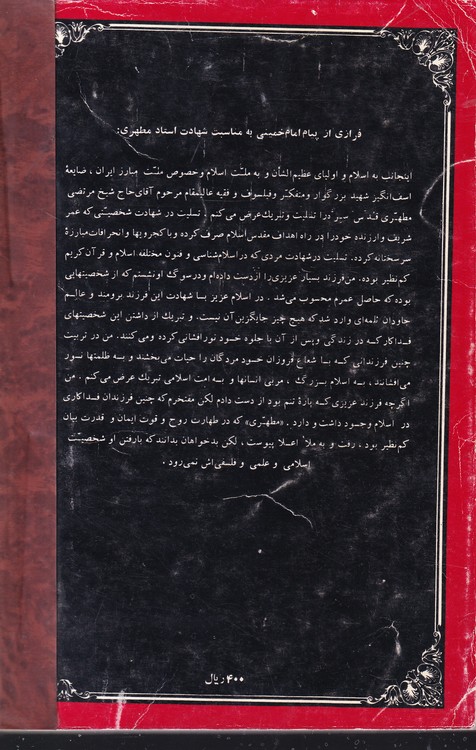 فرازی از پیام امام خمینی به مناسبت شهادت استاد مطهری:
اینجانب به اسلام و اولیای عظیم‌الشأن و به ملت اسلام وخصوص ملت مبارز ایران ، ضایعهٔ
اسف‌انگیز شهید بزرگوار ومتفکر وفیلسوف و فقیه عالیمقام مرحوم آقای‌حاج شیخ مرتضی
مطهری قدس سره‌را تسلیت وتبریک‌عرض می‌کنم . تسلیت در شهادت شخصیتی‌که عمر
شریف وارزنده خودرا در راه اهداف مقدس‌اسلام صرف‌کرده وباکجرویها وانحرافات مبارزهٔ
سرسختانه کرده. تسلیت درشهادت مردی که دراسلام‌شناسی و فنون مختلفه اسلام و قرآن‌کریم
کم‌نظیر بوده. من‌فرزند بسیار عزیزی‌را ازدست داده‌ام ودرسوگ اونشستم که از شخصیتهایی
بوده که حاصل عمرم محسوب می‌شد . در اسلام عزیز بسا شهادت این فرزند برومند و عالم
جاودان ثلمه‌ای وارد شدکه هیچ چیز جایگزین‌آن نیست. و تبریک از داشتن این شخصیتهای
فداکار کسه در زندگی وپس از آن با جلوه خسود نورافشانی‌کرده ومی‌کنند. من در تربیت
چنین فرزندانی کسه بسا شعاع فروزان خسود مردگان را حیات می‌بخشند و بسه ظلمتها نسور
می‌افشانند ، بسه اسلام بسزرگ ، مربی انسانها و بسه امت اسلامی تبریک عرض می‌کنم . من
اگرچه فرزند عزیزی‌کسه پارهٔ تنم بود از دست دادم لکن مفتخرم‌که چنین فرزندان فداکاری
در اسلام وجسود داشت و دارد . «مطهری» که در طهارت روح و قوت ایمان و قدرت بیان
کم‌نظیر بود ، رفت و به ملأ اعلا پیوست ، لکن بدخواهان بدانندکه بارفتن او شخصیت
اسلامی و علمی و فلسفی‌اش نمی‌رود .
۴۰۰ ریال